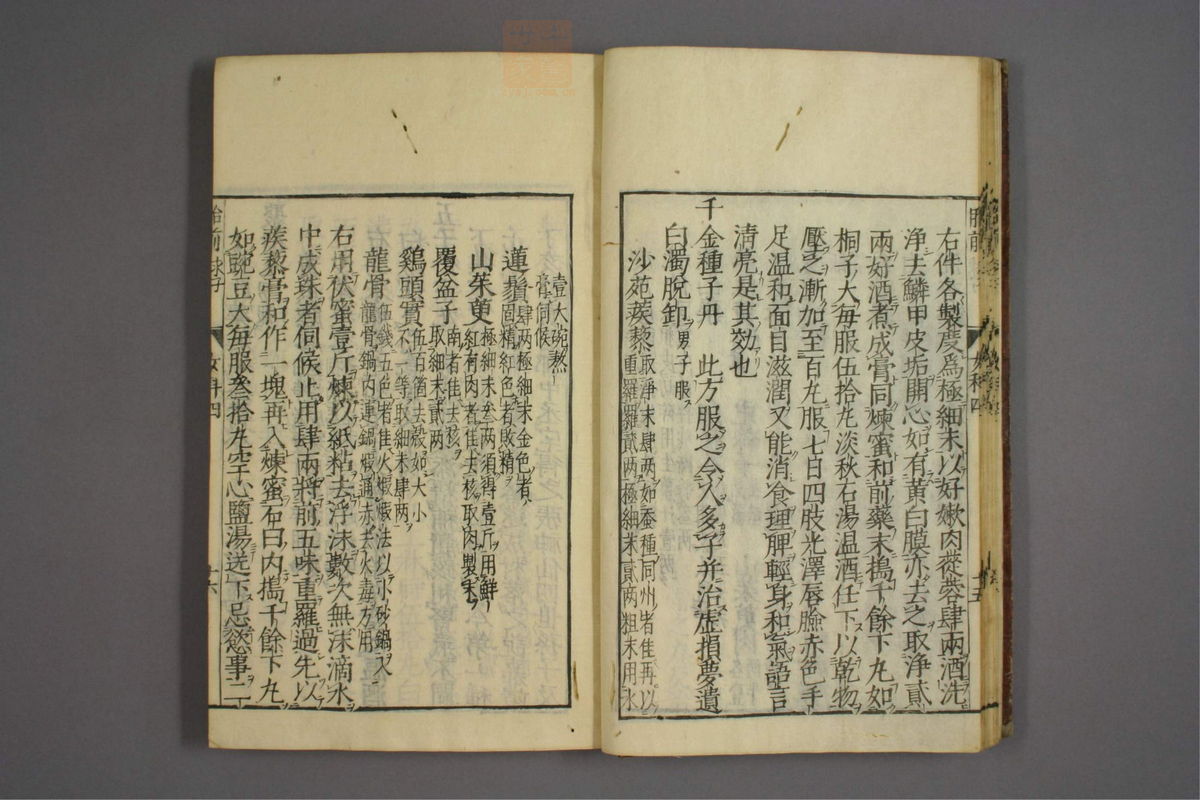 右件各製度爲極細末以好嫩肉蓯蓉肆兩酒洗
淨去鱗甲皮垢開心如有黃白膜亦去之取淨貳
兩好酒煮成膏同煉蜜和前藥末搗千餘下丸如
桐子大每服伍拾丸淡秋石湯温酒任下以乾物
壓之漸加至百丸服七日四肢光澤唇臉赤色手
足温和面目滋潤又能消食理脾輕身和氣語言
清亮是其効也
千金種子丹 此方服之令人多子并治虛損夢遺
白濁脫卸 男子服
沙苑蒺藜 取淨末肆两如蚕種同州者佳再以
重羅羅貳两極細末貳两粗末用水
女科四
十五
壹大碗熬
膏伺候
蓮鬚 肆两極細末金色者
固精紅色者敗精
山茱萸 極細末叁两須得壹斤用鮮
紅有肉者佳去核取肉製末
覆盆子 南者佳去核
取細末貳两
鷄頭實 伍百箇去殻如大小
不一等取細末肆两
龍骨 伍錢五色者佳火煅煅法以小砂鍋入
龍骨鍋内連鍋煅通赤去火毒方用
右用伏蜜壹斤煉以紙粘去浮沫數次無沫滴水
中成珠者伺候止用肆兩將前五味重羅過先以
蒺藜膏和作一塊再入煉蜜石臼内搗千餘下丸
如豌豆大每服叁拾丸空心鹽湯送下忌慾事二
胎前求子
女科四
十六